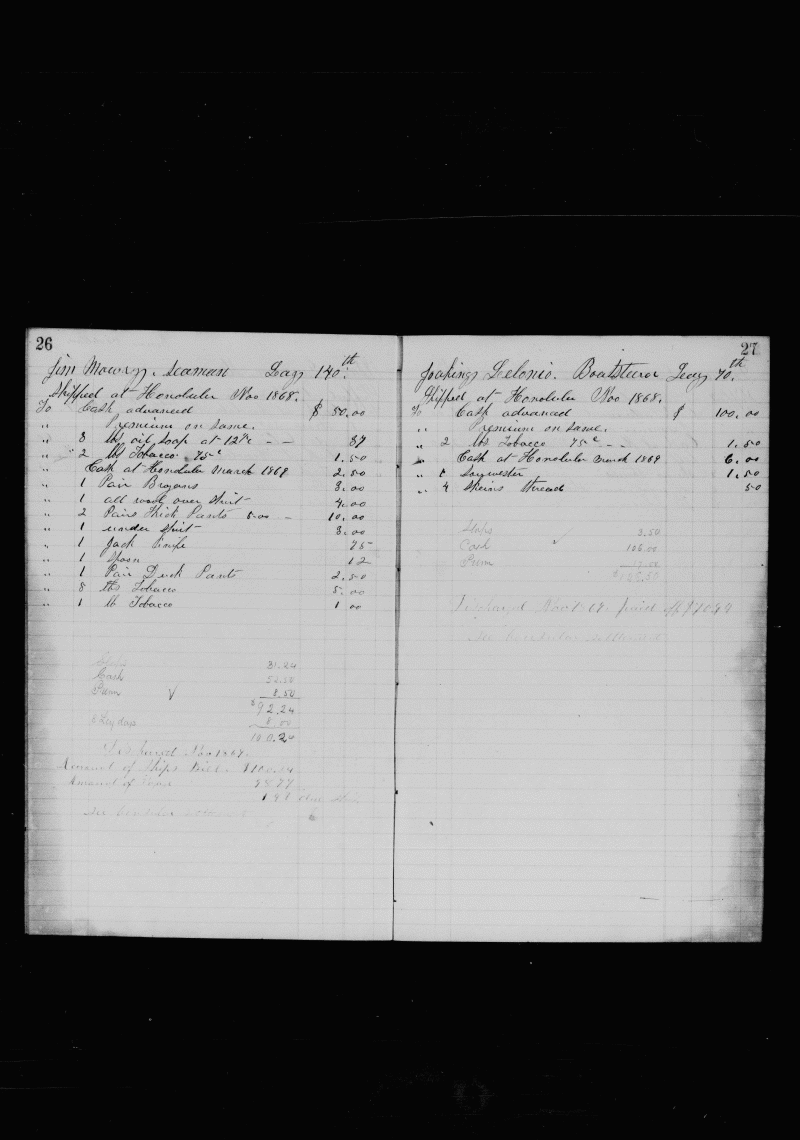 26
Jim Mowry. Seaman Lay 140th
Shipped at Honolulu Nov 1868.
To Cash advanced $ 50.00
" Premium on same.
" 3 lbs oil soap at 12½c - - 37
" 2 lbs Tobacco 75c 1.50
" Cash at Honolulu March 1869 2.50
" 1 Pair Brogans 3.00
" 1 all wool over shirt 4.00
" 2 Pairs thick Pants 5.00 - 10.00
" 1 under shirt 3.00
" 1 Jack knife 75
" 1 Spoon 12
" 1 Pair Duck Pants 2.50
" 8 lbs Tobacco 5.00
" 1 lb Tobacco 1 00
Slops 31.24
Cash 52.50
Prem √ 8.50
$92.24
8.00
100.24
Discharged Nov 1869.
Amount of Ships Bill $100.24
Amount of
1.97
27
Lay 70th
Shipped at Honolulu Nov 1868.
To Cash advanced $ 100.00
" Premium on same.
" 2 lbs Tobacco 75c - - 1.50
" Cash at Honolulu March 1869 6.00
" 1 Souwester 1.50
" 4 Skeins thread 50
Slops 3.50
Cash √ 106.00
Prem
Discharged Nov 1869 paid off